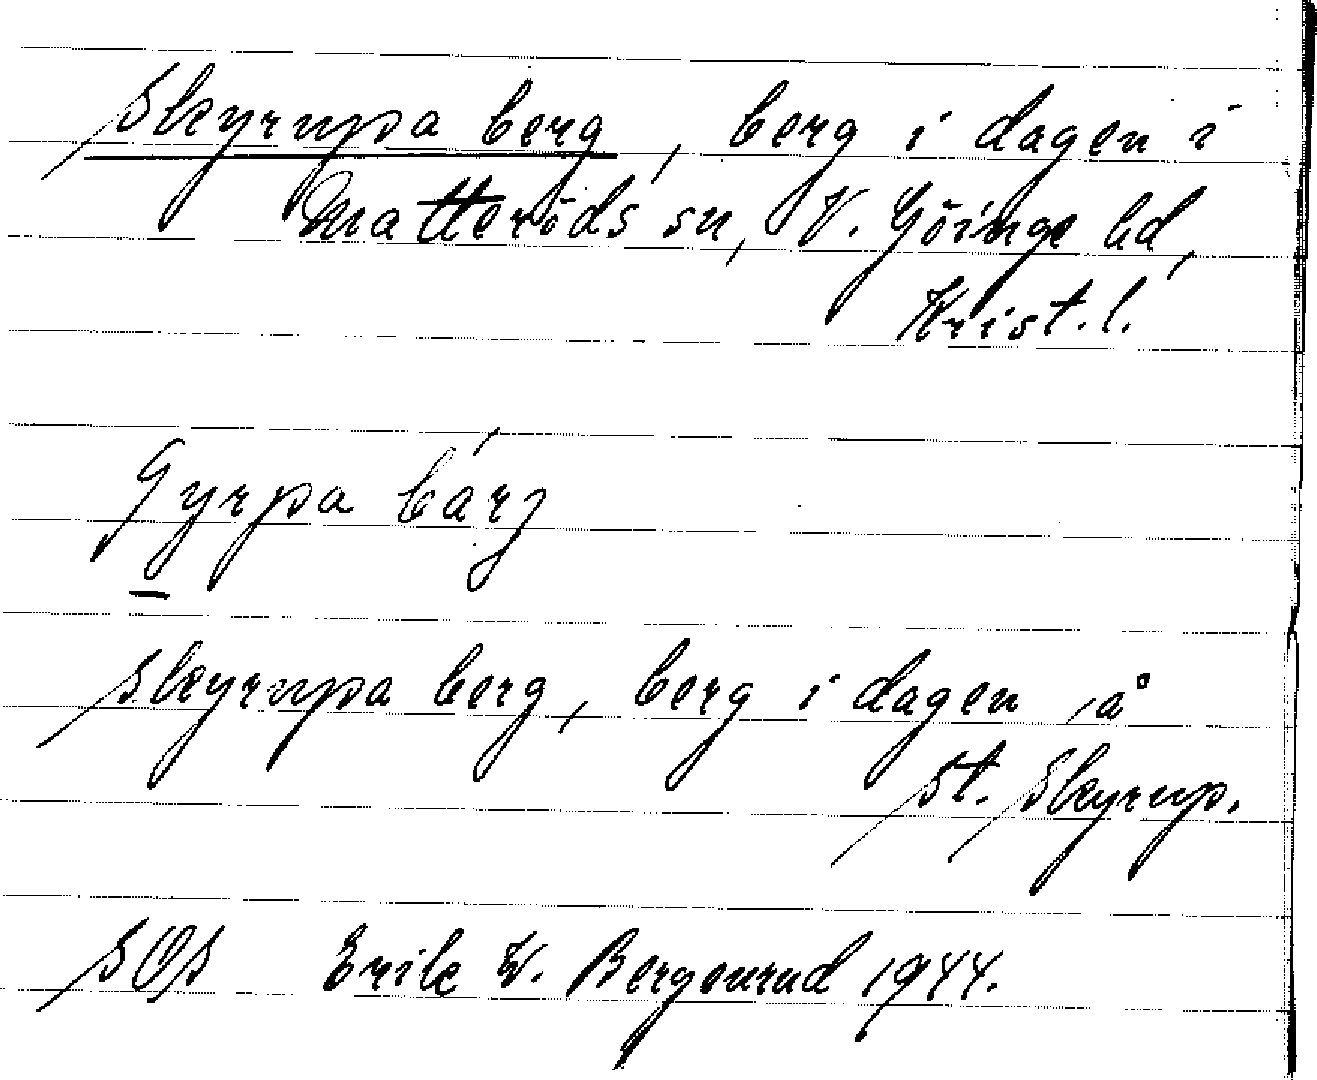 Skyrupa berg, berg i dagen i
Matteröds sn, V. Göinge hd,
Krist. l.
berg, berg i dagen å
Skyrupa berg, berg i dagen å
St. Skyrup.
SOS Erik W. Bergenrud 1944.